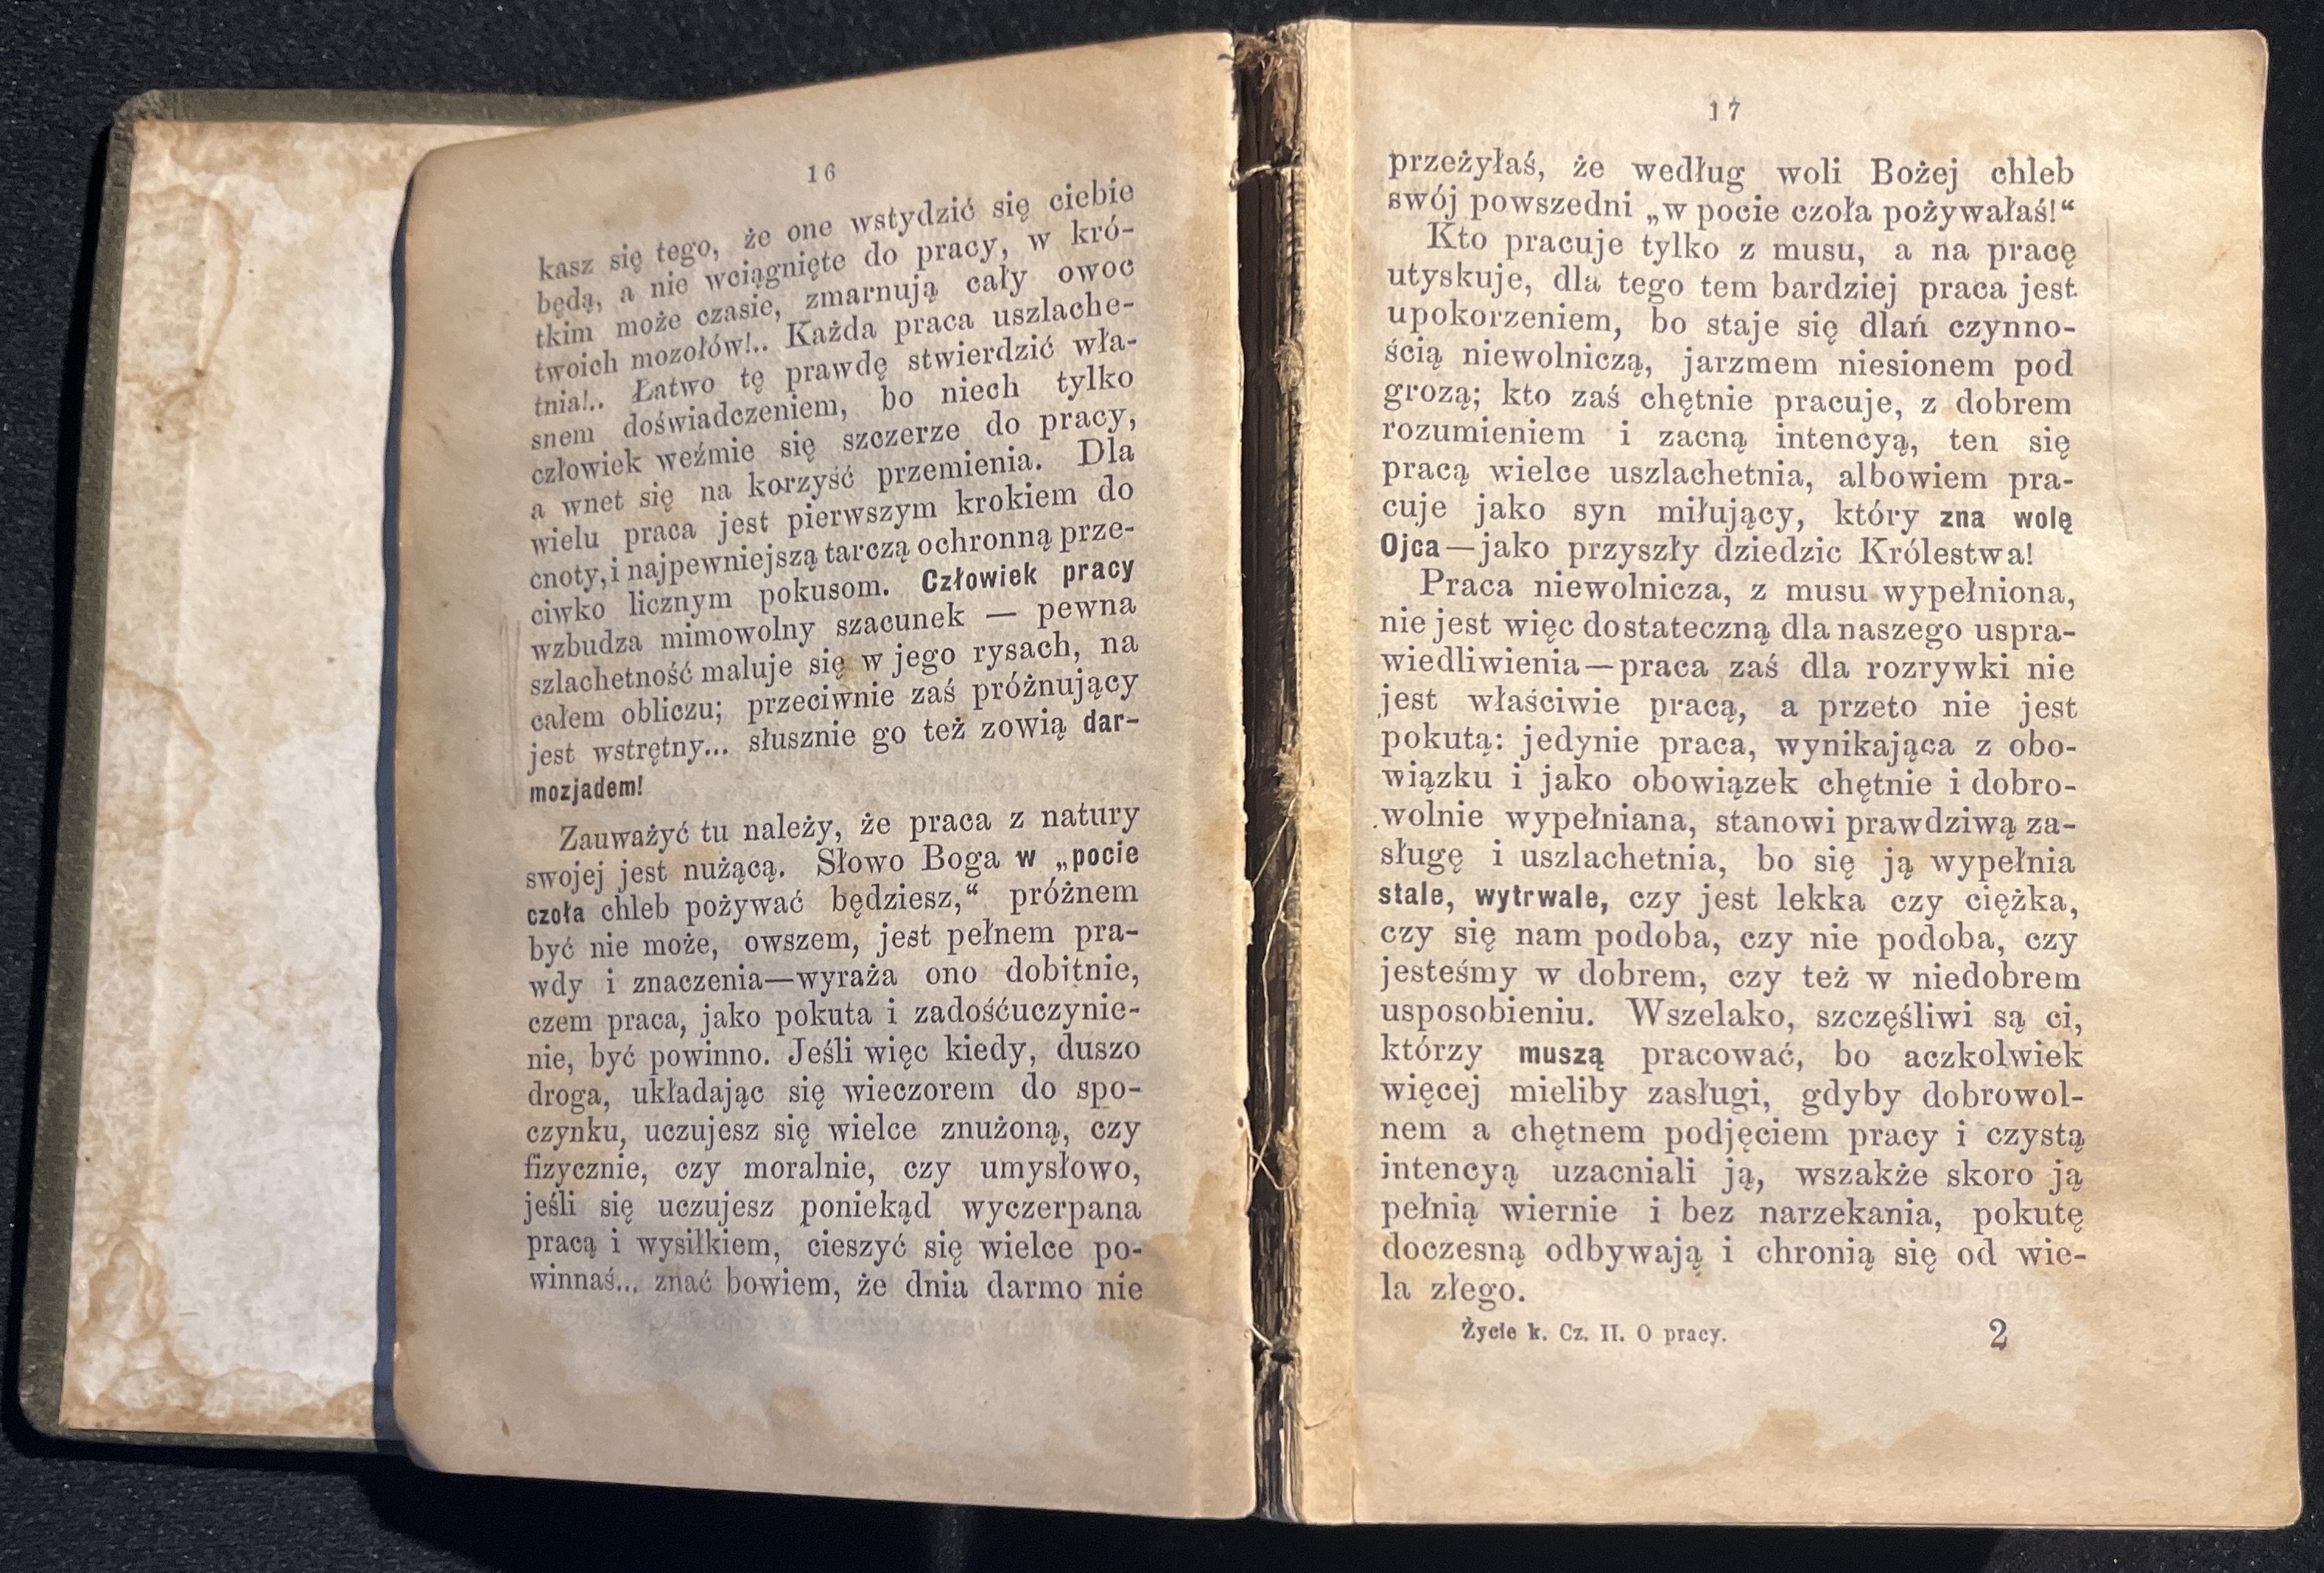 16
kasz się tego, że one wstydzić się ciebie
będą, a nie wciągnięte do pracy, w kró-
tkim może czasie, zmarnują cały owoc
twoich mozołów!.. Każda praca uszlache-
tnia!.. Łatwo tę prawdę stwierdzić wła-
snem doświadczeniem, bo niech tylko
człowiek weźmie się szczerze do pracy,
a wnet się na korzyść przemienia. Dla
wielu praca jest pierwszym krokiem do
cnoty, i najpewniejszą tarczą ochronną prze-
ciwko licznym pokusom. Człowiek pracy
wzbudza mimowolny szacunek — pewna
szlachetność maluje się w jego rysach, na
całem obliczu; przeciwnie zaś próżnujący
jest wstrętny... słusznie go też zowią dar-
mozjadem!
Zauważyć tu należy, że praca z natury
swojej jest nużącą. Słowo Boga w „pocie
czoła chleb pożywać będziesz,“ próżnem
być nie może, owszem, jest pełnem pra-
wdy i znaczenia—wyraża ono dobitnie,
czem praca, jako pokuta i zadośćuczynie-
nie, być powinno. Jeśli więc kiedy, duszo
droga, układając się wieczorem do spo-
czynku, uczujesz się wielce znużoną, czy
fizycznie, czy moralnie, czy umysłowo,
jeśli się uczujesz poniekąd wyczerpana
pracą i wysiłkiem, cieszyć się wielce po-
winnaś... znać bowiem, że dnia darmo nie
17
przeżyłaś, że według woli Bożej chleb
swój powszedni „w pocie czoła pożywałaś!“
Kto pracuje tylko z musu, a na pracę
utyskuje, dla tego tem bardziej praca jest
upokorzeniem, bo staje się dlań czynno-
ścią niewolniczą, jarzmem niesionem pod
grozą; kto zaś chętnie pracuje, z dobrem
rozumieniem i zacną intencyą, ten się
pracą wielce uszlachetnia, albowiem pra-
cuje jako syn miłujący, który zna wolę
Ojca—jako przyszły dziedzic Królestwa!
Praca niewolnicza, z musu wypełniona,
nie jest więc dostateczną dla naszego uspra-
wiedliwienia—praca zaś dla rozrywki nie
jest właściwie pracą, a przeto nie jest
pokutą: jedynie praca, wynikająca z obo-
wiązku i jako obowiązek chętnie i dobro-
wolnie wypełniana, stanowi prawdziwą za-
sługę i uszlachetnia, bo się ją wypełnia
stale, wytrwale, czy jest lekka czy ciężka,
czy się nam podoba, czy nie podoba, czy
jesteśmy w dobrem, czy też w niedobrem
usposobieniu. Wszelako, szczęśliwi są ci,
którzy muszą pracować, bo aczkolwiek
więcej mieliby zasługi, gdyby dobrowol-
nem a chętnem podjęciem pracy i czystą
intencyą uzacniali ją, wszakże skoro ją
pełnią wiernie i bez narzekania, pokutę
doczesną odbywają i chronią się od wie-
la złego.
Życie k. Cz. II. O pracy. 2